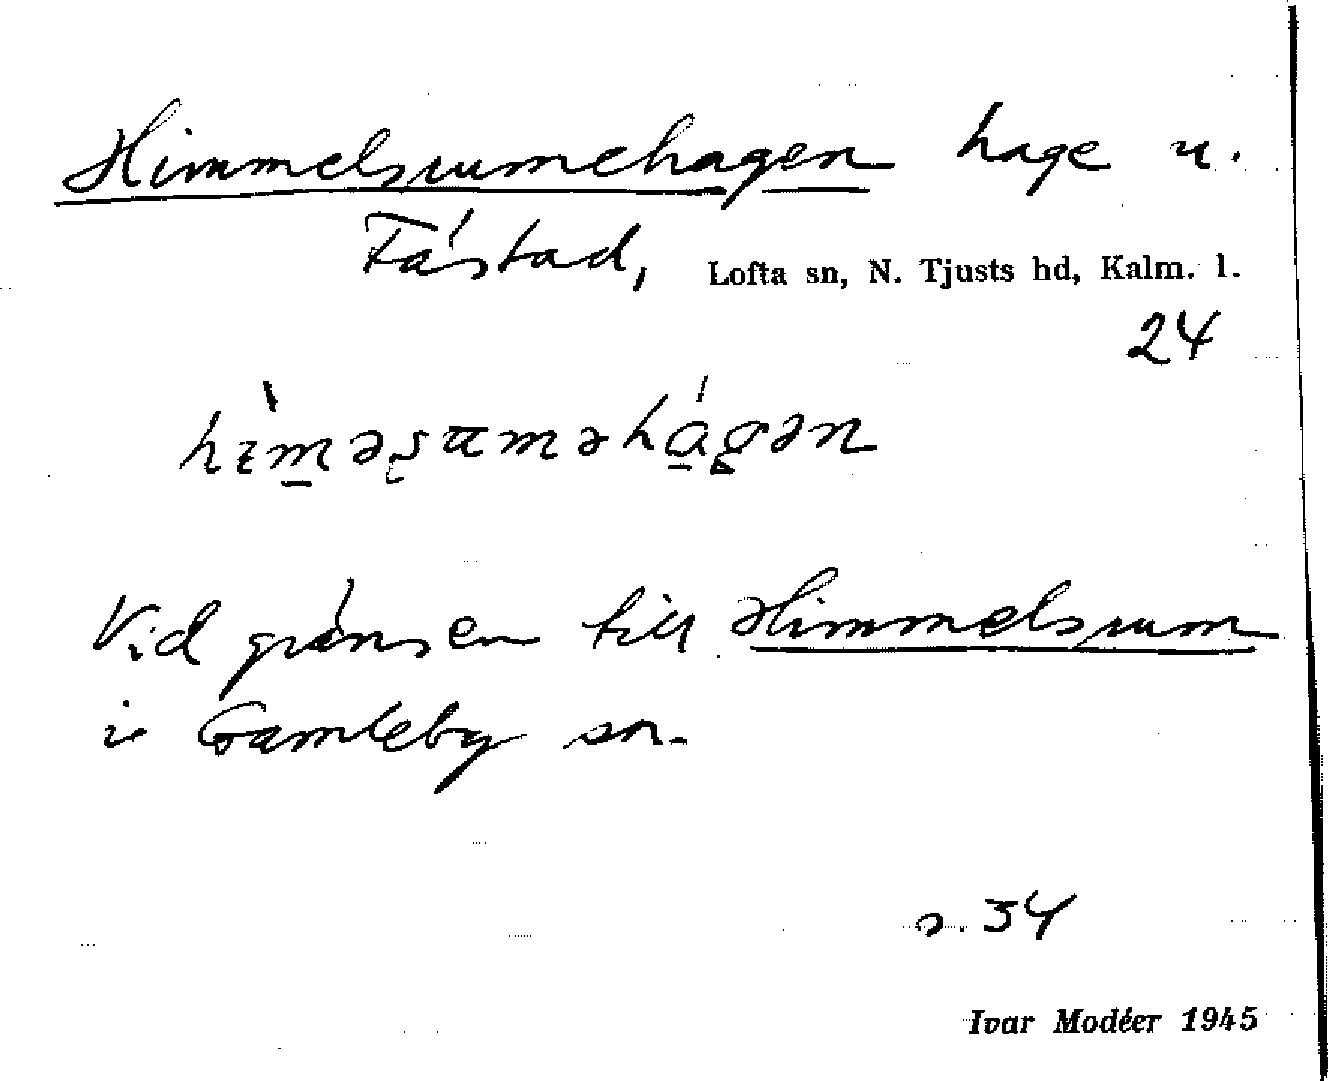 Himmelsrumehagen hage u.
Fåstad, Lofta sn, N. Tjusts hd, Kalm. l.
24
Vid gränsen till Himmelsrum
i Gamleby sn.
s. 34
Ivar Modéer 1945